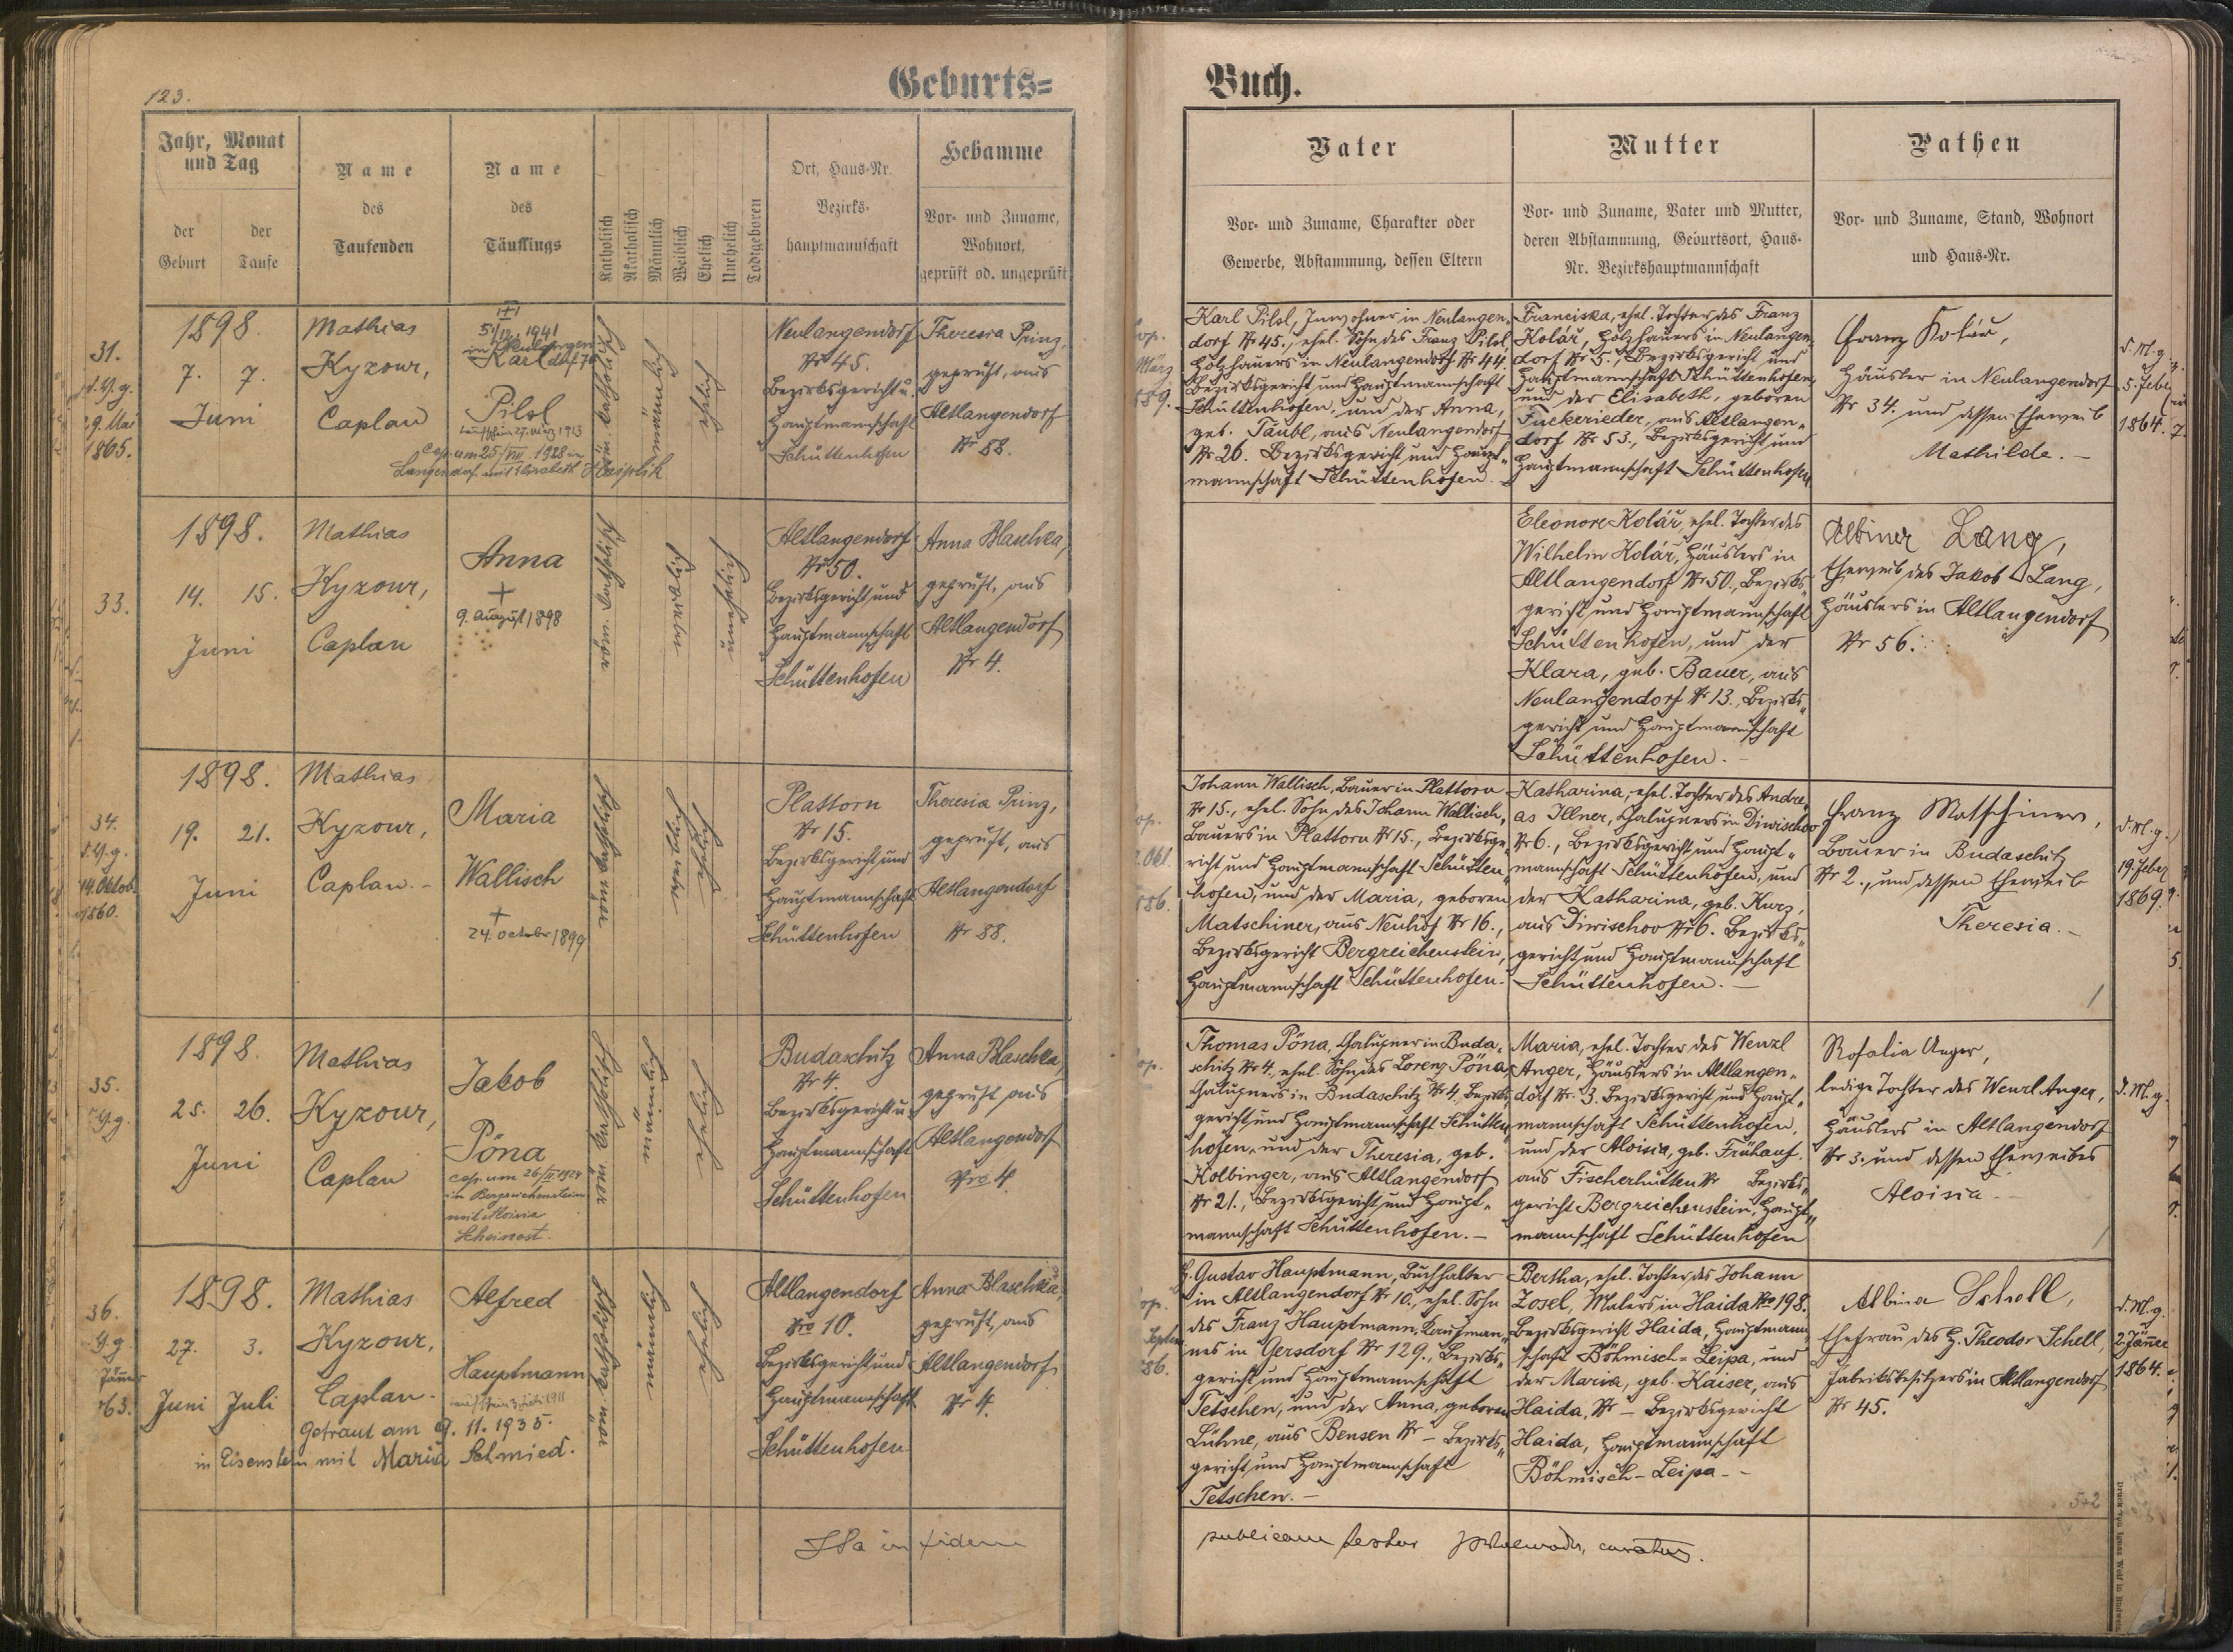 123.
Geburts=
Jahr, Monat
und Tag
der
Geburt
der
Taufe
Name
des
Taufenden
Name
des
Täuflings
Katholisch
Akatholisch
Männlich
Weiblich
Ehelich
Unehelich
Todtgeboren
Ort, Haus-Nr.
Bezirks-
hauptmannschaft
Hebamme
Vor- und Zuname,
Wohnort,
geprüft od. ungeprüft
31.
29. Mai
1865.
1898.
7. 7.
Juni
Mathias
Kyzour,
Caplan
5/12 1941
Karl
Pilsl
Cop. am 25/VIII. 1928 in
Langendorf mit Elisabeth
röm. katholisch
männlich
ehelich
Neulangendorf
Nr 45.
Bezirksgericht u.
Hauptmannschaft
Schüttenhofen
Theresia Prinz,
geprüft, aus
Altlangendorf
Nr 88.
33.
1898.
14. 15.
Juni
Mathias
Kyzour,
Caplan
Anna
+
9. August 1898
röm. katholisch
weiblich
unehelich
Altlangendorf
Nr 50.
Bezirksgericht und
Hauptmannschaft
Schüttenhofen
Anna Blaschka,
geprüft, aus
Altlangendorf
Nr 4.
34.
14. Oktob.
1860.
1898.
19. 21.
Juni
Mathias
Kyzour,
Caplan.-
Maria
Wallisch
+
24. October 1899
röm. katholisch
weiblich
ehelich
Plattorn
Nr 15.
Bezirksgericht und
Hauptmannschaft
Schüttenhofen
Theresia Prinz,
geprüft, aus
Altlangendorf
Nr 88.
35.
1898.
25. 26.
Juni
Mathias
Kyzour,
Caplan
Jakob
Pöna
cop. am 26/II. 1924
in Bergreichenstein
mit Aloisia
röm. katholisch
männlich
ehelich
Budaschitz
Nr 4.
Bezirksgericht u.
Hauptmannschaft
Schüttenhofen
Anna Blaschka,
geprüft aus
Altlangendorf
Nro 4
36.
Jänner
63.
1898.
27. 3.
Juni Juli
Mathias
Kyzour,
Caplan-
Alfred
Hauptmann
Getraut am 9. 11. 1935
in Eisenstein mit Maria Schmied.
röm. katholisch
männlich
ehelich
Altlangendorf
Nro 10.
Bezirksgericht und
Hauptmannschaft
Schüttenhofen
Anna Blaschka,
geprüft, aus
Altlangendorf
Nr 4.
Ita in fidem
Buch.
Vater
Vor- und Zuname, Charakter oder
Gewerbe, Abstammung, dessen Eltern
Mutter
Vor- und Zuname, Vater und Mutter,
deren Abstammung, Geburtsort, Haus-
Nr. Bezirkshauptmannschaft
Pathen
Vor- und Zuname, Stand, Wohnort
und Haus-Nr.
Karl Pilsl, Inwohner in Neulangen-
dorf Nr 45., ehel. Sohn des Franz Pilsl,
Holzhauers in Neulangendorf Nr 44.
Bezirksgericht und Hauptmannschaft
Schüttenhofen, und der Anna,
geb. Täubl, aus Neulangendorf
Nr 26. Bezirksgericht und Haupt-
mannschaft Schüttenhofen.
Franciska, ehel. Tochter des Franz
Kolář, Holzhauers in Neulangen-
dorf Nr 5., Bezirksgericht und
Hauptmannschaft Schüttenhofen,
und der Elisabeth, geboren
Tuckerieder, aus Altlangen-
dorf Nr 53., Bezirksgericht und
Hauptmannschaft Schüttenhofen
Franz Kolář,
Häusler in Neulangendorf
Nr 34. und dessen Eheweib
Mathilde.-
5. Feber
1864.
Eleonore Kolář, ehel. Tochter des
Wilhelm Kolář, Häuslers in
Altlangendorf Nr 50., Bezirks-
gericht und Hauptmannschaft
Schüttenhofen, und der
Klara, geb. Bauer, aus
Neulangendorf Nr 13., Bezirks-
gericht und Hauptmannschaft
Schüttenhofen.-
Lang,
Eheweib des Jakob Lang,
Häuslers in Altlangendorf
Nr 56.
Johann Wallisch, Bauer in Plattorn
Nr 15., ehel. Sohn des Johann Wallisch,
Bauers in Plattorn Nr 15., Bezirksge-
richt und Hauptmannschaft Schütten-
hofen, und der Maria, geboren
Matschiner, aus Neuhof Nr 16.,
Bezirksgericht Bergreichenstein,
Hauptmannschaft Schüttenhofen.-
Katharina, ehel. Tochter des Andre-
as Illner, Chalupners in Diwischov
Nr 6., Bezirksgericht und Haupt-
mannschaft Schüttenhofen, und
der Katharina, geb. Kurz,
aus Diwischov Nr 6. Bezirks-
gericht und Hauptmannschaft
Schüttenhofen.-
Franz Matschiner,
Bauer in Budaschitz
Nr 2., und dessen Eheweib
Theresia.-
19. Feber
1869.
Thomas Pöna, Chalupner in Buda-
schitz Nr 4., ehel. Sohn des Lorenz Pöna
Chalupners in Budaschitz Nr 4. Bezirks-
gericht und Hauptmannschaft Schütten-
hofen, und der Theresia, geb.
Kolbinger, aus Altlangendorf
Nr 21., Bezirksgericht und Haupt-
mannschaft Schüttenhofen.-
Maria, ehel. Tochter des Wenzl
Anger, Häuslers in Altlangen-
dorf Nr. 3. Bezirksgericht und Haupt-
mannschaft Schüttenhofen,
und der Aloisia, geb. Frühauf.
aus Fischerhütten Nr Bezirks-
gericht Bergreichenstein, Haupt-
mannschaft Schüttenhofen
Rosalia Anger,
ledige Tochter des Wenzl Anger,
Häuslers in Altlangendorf
Nr 3. und dessen Eheweibes
Aloisia-
H. Gustav Hauptmann, Buchhalter
in Altlangendorf Nr 10., ehel. Sohn
des Franz Hauptmann, Kaufman-
nes in Gersdorf Nr 129., Bezirks-
gericht und Hauptmannschaft
Tetschen, und der Anna, geboren
Lühne, aus Bensen Nr - Bezirks-
gericht und Hauptmannschaft
Tetschen.-
Bertha, ehel. Tochter des Johann
Zosel, Malers in Haida Nro 198.
Bezirksgericht Haida, Hauptmann-
schaft Böhmisch-Leipa, und
der Maria, geb. Kaiser, aus
Haida, Nr - Bezirksgericht
Haida, Hauptmannschaft
Böhmisch-Leipa-
Albina Schell,
Ehefrau des H. Theodor Schell,
Fabriksbesitzers in Altlangendorf
Nr 45.
2. Jänner
1864.
5+2
publicam testor curatus.
Druck von Ignaz Wolf in Budweis.